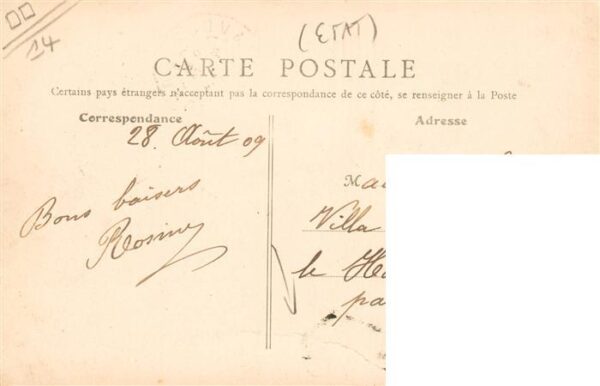 14
(ETAT)
CARTE POSTALE
Certains pays étrangers n'acceptant pas la correspondance de ce côté, se renseigner à la Poste
Correspondance
Adresse
28 Août 09
Bons baisers
Ma
Villa
le
pa